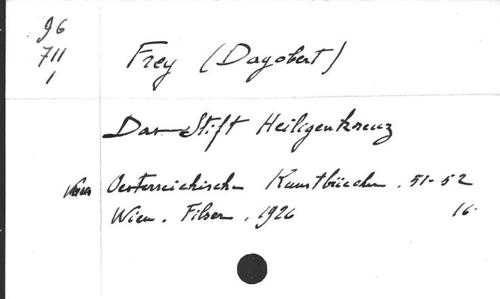 96
711
1
Frey (Dagobert)
Das Stift Heiligenkreuz
Oesterreichische Kunstbücher. 51-52
Wien. Filser. 1926 16